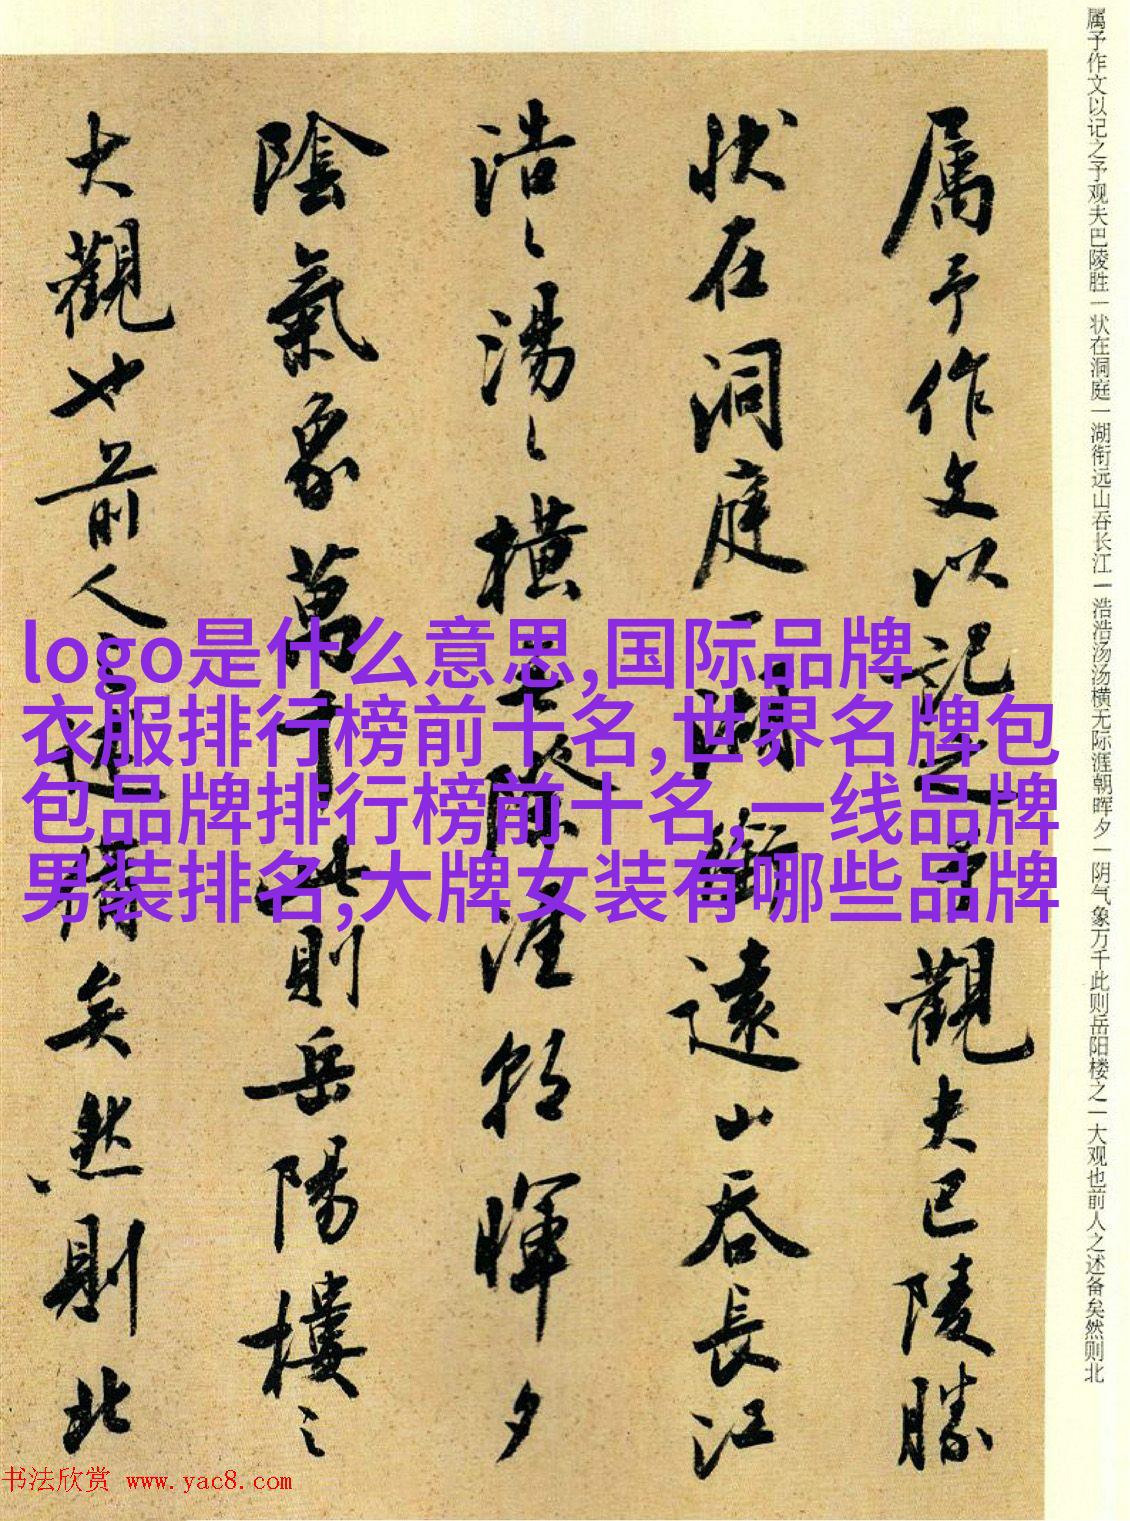 属予作文以记之予观夫巴陵胜一状在洞庭一湖衔远山吞长江一浩浩汤汤横无际涯朝晖夕一阴气象万千此则岳阳楼之一大观也前人之述备矣然则北
属予作文以記之予觀夫巴陵勝
状在洞庭一湖銜遠山吞長江
浩〻湯〻横無際涯朝暉夕
陰氣象萬千此則岳陽樓之
大觀也前人之述備矣然則北
logo是什么意思,国际品牌
衣服排行榜前十名,世界名牌包
包品牌排行榜前十名,一线品牌
男装排名,大牌女装有哪些品牌
书法欣赏 www.yac8.com